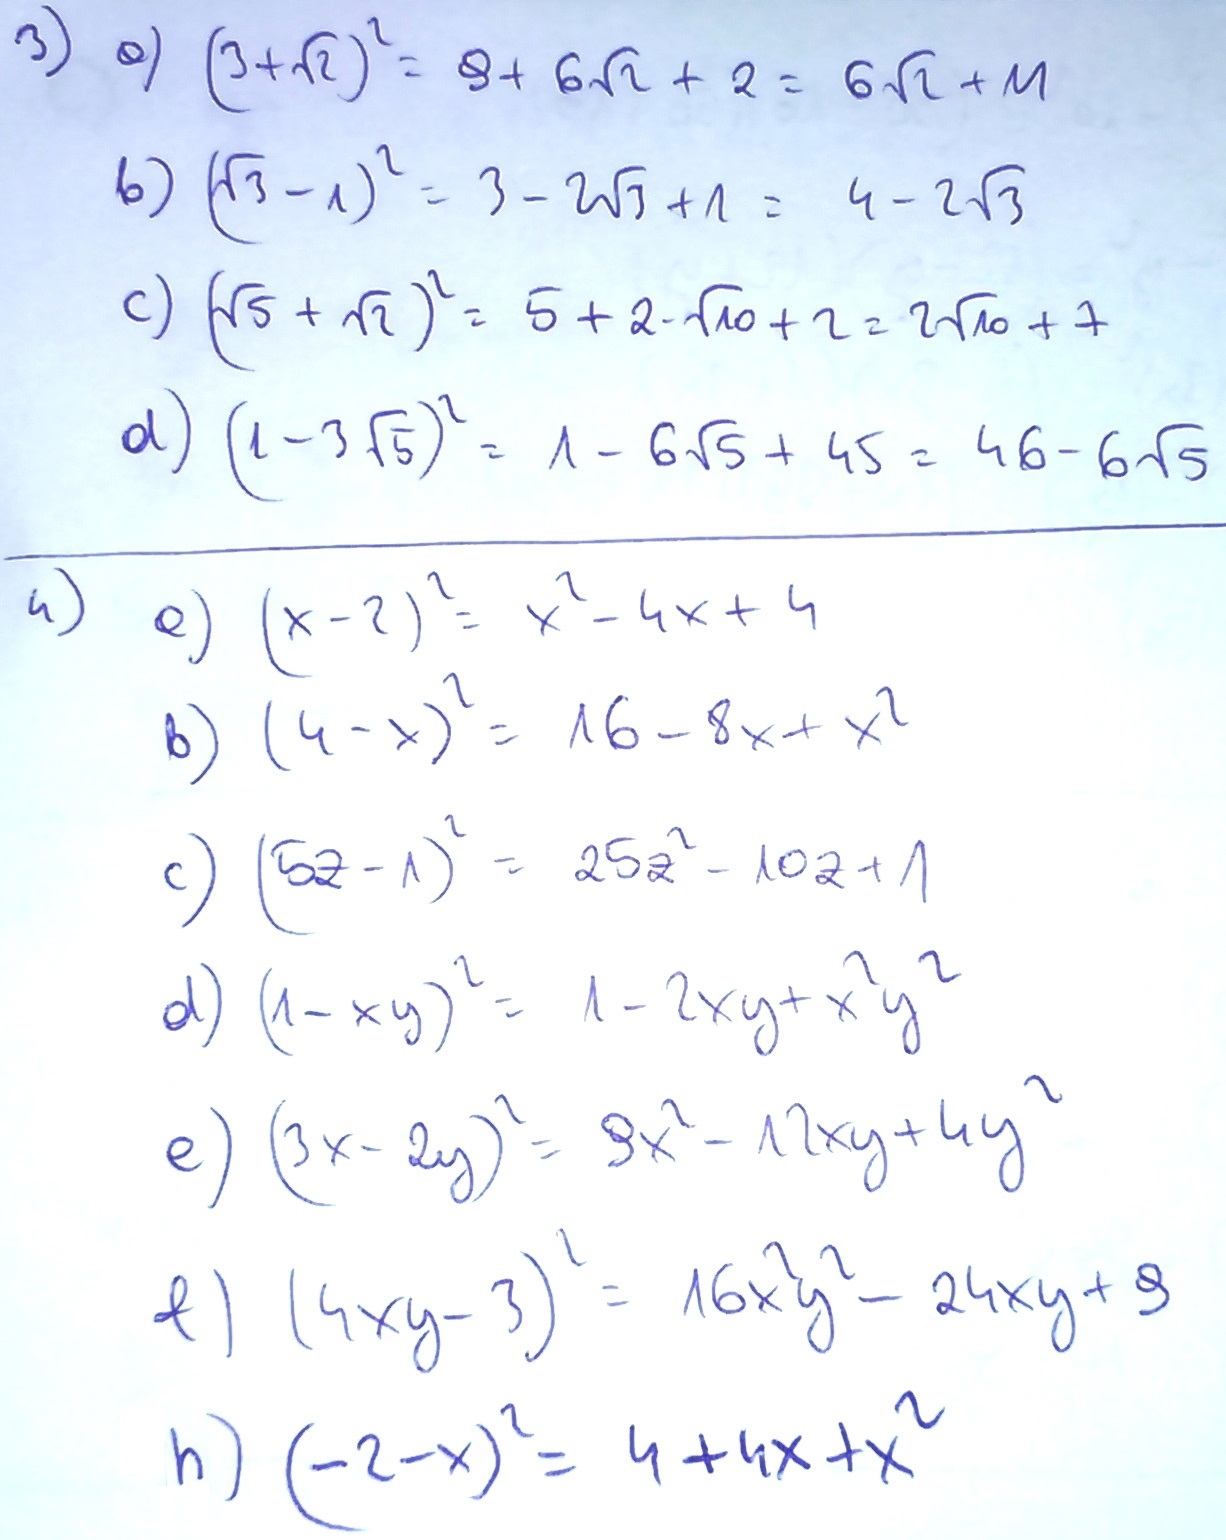 3) a) (3+√2)² = 9 + 6√2 + 2 = 6√2 + 11
b) (√3 - 1)² = 3 - 2√3 + 1 = 4 - 2√3
c) (√5 + √2)² = 5 + 2·√10 + 2 = 2√10 + 7
d) (1 - 3√5)² = 1 - 6√5 + 45 = 46 - 6√5
4) a) (x - 2)² = x² - 4x + 4
b) (4 - x)² = 16 - 8x + x²
c) (5z - 1)² = 25z² - 10z + 1
d) (1 - xy)² = 1 - 2xy + x²y²
e) (3x - 2y)² = 9x² - 12xy + 4y²
f) (4xy - 3)² = 16x²y² - 24xy + 9
h) (-2 - x)² = 4 + 4x + x²